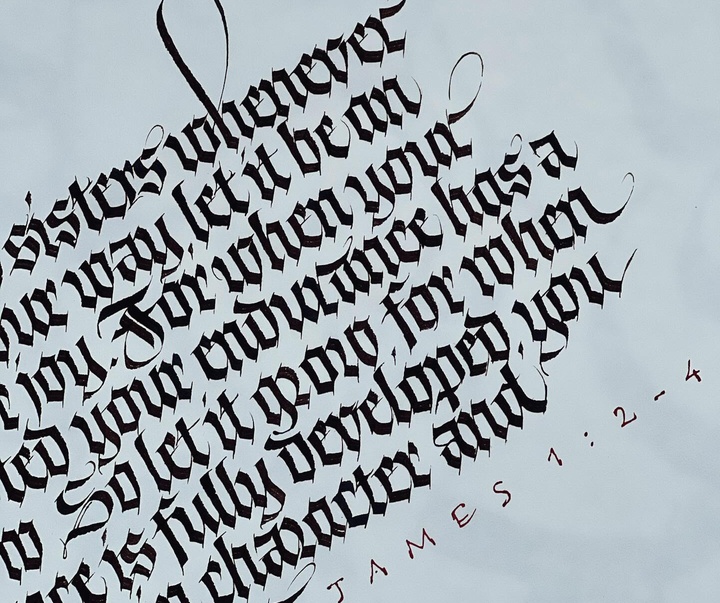 sisters whenever
way, let it be an
joy. For when your
your endurance has a
So let it grow, for when
is fully developed, you
character and
JAMES 1:2-4